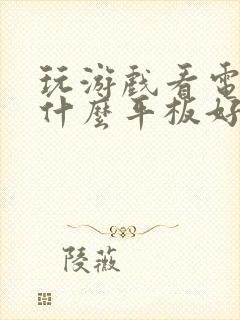 玩游戲看電
什麼平板好
陵薇